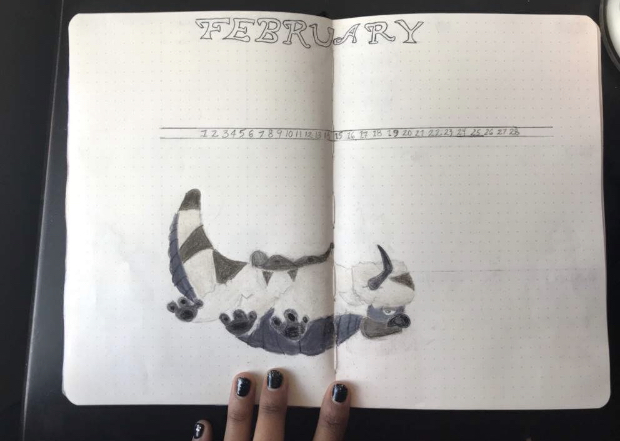 FEBRUARY
1 2 3 4 5 6 7 8 9 10 11 12 13 14 15 16 17 18 19 20 21 22 23 24 25 26 27 28